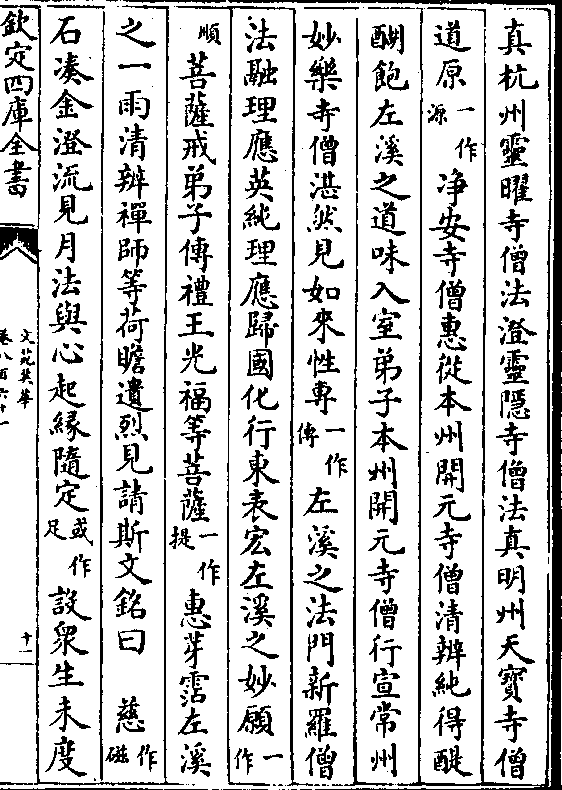 真杭州靈曜寺僧法澄靈隱寺僧法真明州天寶寺僧
道原一作源淨安寺僧惠從本州開元寺僧清辨純得醍
醐飽左溪之道味入室弟子本州開元寺僧行宣常州
妙樂寺僧湛然見如來性專一作傳左溪之法門新羅僧
法融理應英純理應歸國化行東表宏左溪之妙願一作
順菩薩戒弟子傳禮王光福等菩薩一作提惠芽霑左溪
之一雨清辨禪師等荷瞻遺烈見請斯文銘曰 慈作磁
石湊金澄流見月法與心起緣隨定或作足設衆生未度
欽定四庫全書
文苑英華
卷八百六十一
十一